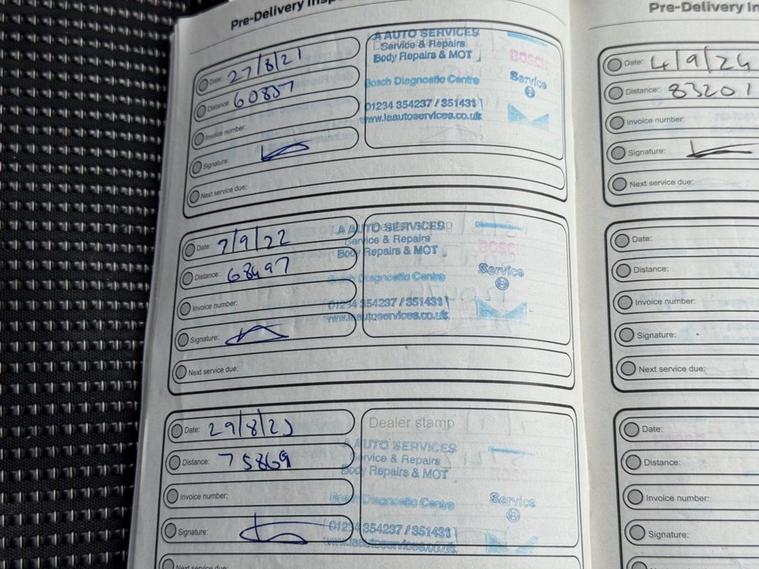 Pre-Delivery Insp
Date: 27/8/21
Distance: 60857
Invoice number:
Signature:
Next service due:
A AUTO SERVICES
Service & Repairs
Body Repairs & MOT
BOSCH
Bosch Diagnostic Centre
Service
01234 354237 / 351431
www.laautoservices.co.uk
Date: 7/9/22
Distance: 68497
Invoice number:
Signature:
Next service due:
A AUTO SERVICES
Service & Repairs
Body Repairs & MOT
BOSCH
Bosch Diagnostic Centre
Service
01234 354237 / 351431
www.laautoservices.co.uk
Date: 29/8/23
Distance: 75869
Invoice number:
Signature:
Next service due:
Dealer stamp
A AUTO SERVICES
Service & Repairs
Body Repairs & MOT
Bosch Diagnostic Centre
Service
01234 354237 / 351431
www.laautoservices.co.uk
Pre-Delivery In
Date: 4/9/24
Distance: 83201
Invoice number:
Signature:
Next service due:
Date:
Distance:
Invoice number:
Signature:
Next service due:
Date:
Distance:
Invoice number:
Signature: